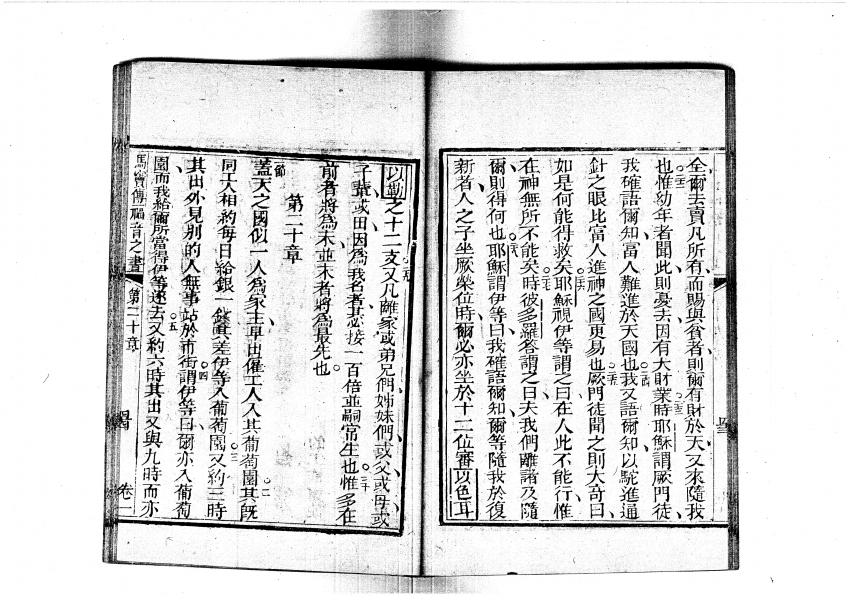 全爾去賣凡所有而賜與貧者則爾有財於天又來隨我
也惟幼年者聞此則憂去因有大財業時耶穌謂厥門徒
我確語爾知富人難進於天國也我又語爾知以駝進通
針之眼比富人進神之國更易也厥門徒聞之則大奇曰
如是何能得救矣耶穌視伊等謂之曰在人此不能行惟
在神無所不能矣時彼多羅答謂之曰夫我們離諸及隨
爾則得何也耶穌謂伊等曰我確語爾知爾等隨我於復
新者人之子坐厥榮位時爾必亦坐於十二位審以色耳
以勒之十二支又凡離家或弟兄們姊妹們或父或母或
子輩或田因爲我名者必接一百倍並嗣常生也惟多在
前者將爲末並末者將爲最先也
第二十章
節
蓋天之國似一人爲家主早出僱工人入其葡萄園其旣
同工人相約每日給銀一錢其差伊等入葡萄園又約三時
其出外見別的人無事站於市街謂伊等曰爾亦入葡萄
園而我給爾所當得伊等遂去又約六時其出又與九時而亦
馬竇傳福音之書 第二十章 卷一